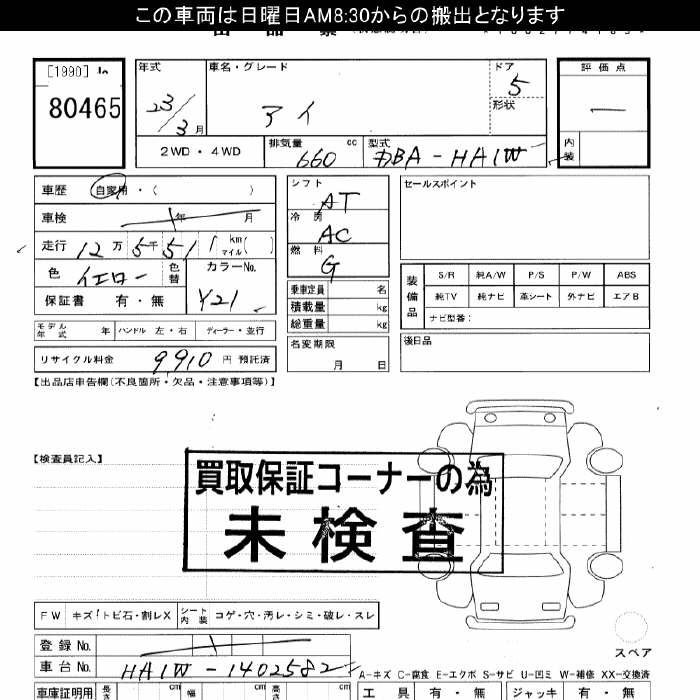 この車両は日曜日AM8:30からの搬出となります
[1990]
80465
年式
23/3月
車名・グレード
アイ
ドア
5
形状
評価点
内装
2WD・4WD
排気量
660
cc
型式
DBA-HA1W
車歴
自家用・(　　　)
車検
年　月
走行
12万5千51
km
マイル
色
イエロー
色替
カラーNo.
Y21
保証書
有・無
シフト
AT
冷房
AC
燃料
G
乗車定員
名
積載量
kg
総重量
kg
名変期限
月　日
セールスポイント
装備品
S/R
純A/W
P/S
P/W
ABS
純TV
純ナビ
革シート
外ナビ
エアB
ナビ型番:
後日品
モデル年式
年
ハンドル
左・右
ディーラー・並行
リサイクル料金
9910
円
預託済
【出品店申告欄(不良箇所・欠品・注意事項等)】
【検査員記入】
買取保証コーナーの為
未検査
FW
キズ!トビ石・割レX
シート内装
コゲ・穴・汚レ・シミ・破レ・スレ
スペア
登録No.
車台No.
HA1W-1402582
A-キズ C-腐食 E-エクボ S-サビ U-凹ミ W-補修 XX-交換済
車庫証明用
長さ
cm
幅
cm
高さ
cm
工具
有・無
ジャッキ
有・無